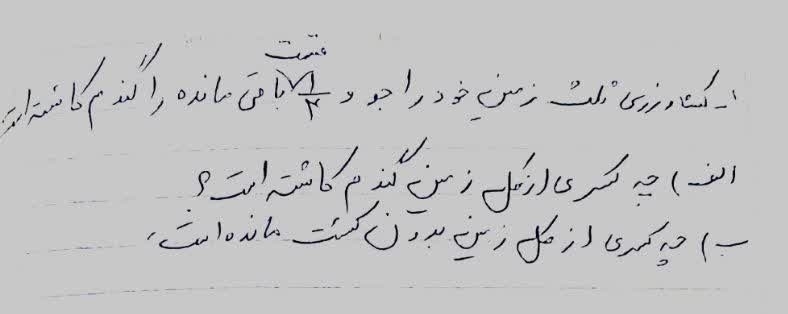 قسمت
۱- کشاورزی ثلث زمین خود را جو و ۱/۲ باقی مانده را گندم کاشته است
الف) چه کسری از کل زمین گندم کاشته است؟
ب) چه کسری از کل زمین بدون کشت مانده است.